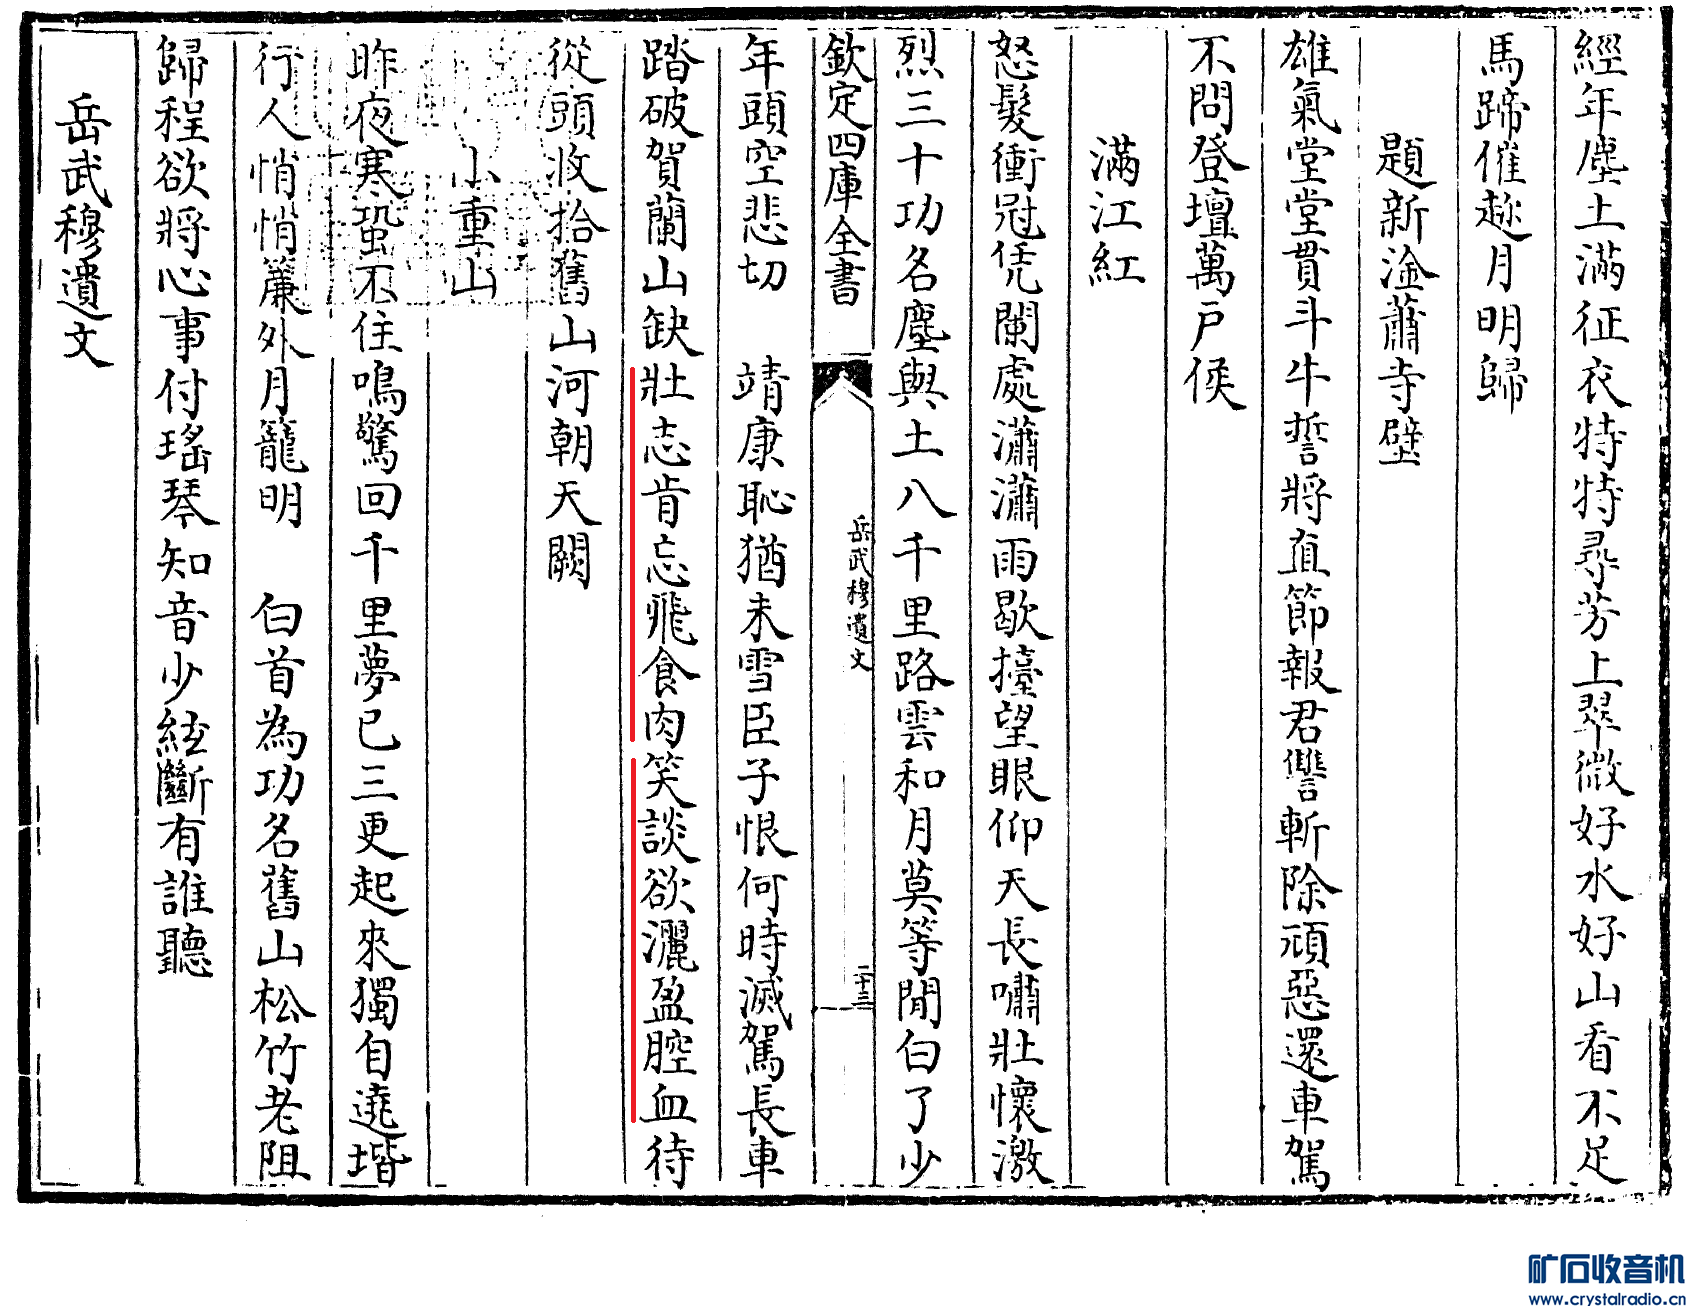 經年塵土滿征衣特特尋芳上翠微好水好山看不足
馬蹄催趂月明歸
題新淦蕭寺壁
雄氣堂堂貫斗牛誓將直節報君讐斬除頑惡還車駕
不問登壇萬戶侯
滿江紅
怒髮衝冠凭闌處瀟瀟雨歇擡望眼仰天長嘯壯懷激
烈三十功名塵與土八千里路雲和月莫等閒白了少
欽定四庫全書
岳武穆遺文
二十三
年頭空悲切 靖康恥猶未雪臣子恨何時滅駕長車
踏破賀蘭山缺壯志肯忘飛食肉笑談欲灑盈腔血待
從頭收拾舊山河朝天闕
小重山
昨夜寒蛩不住鳴驚回千里夢已三更起來獨自遶堦
行人悄悄簾外月籠明 白首為功名舊山松竹老阻
歸程欲將心事付瑤琴知音少絃斷有誰聽
岳武穆遺文
矿石收音机
www.crystalradio.cn